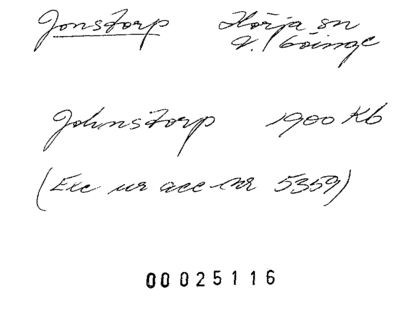 Jonstorp Hörja sn
V. Göinge
Johnstorp 1900 Kb
(Exc ur acc nr 5359)
00025116